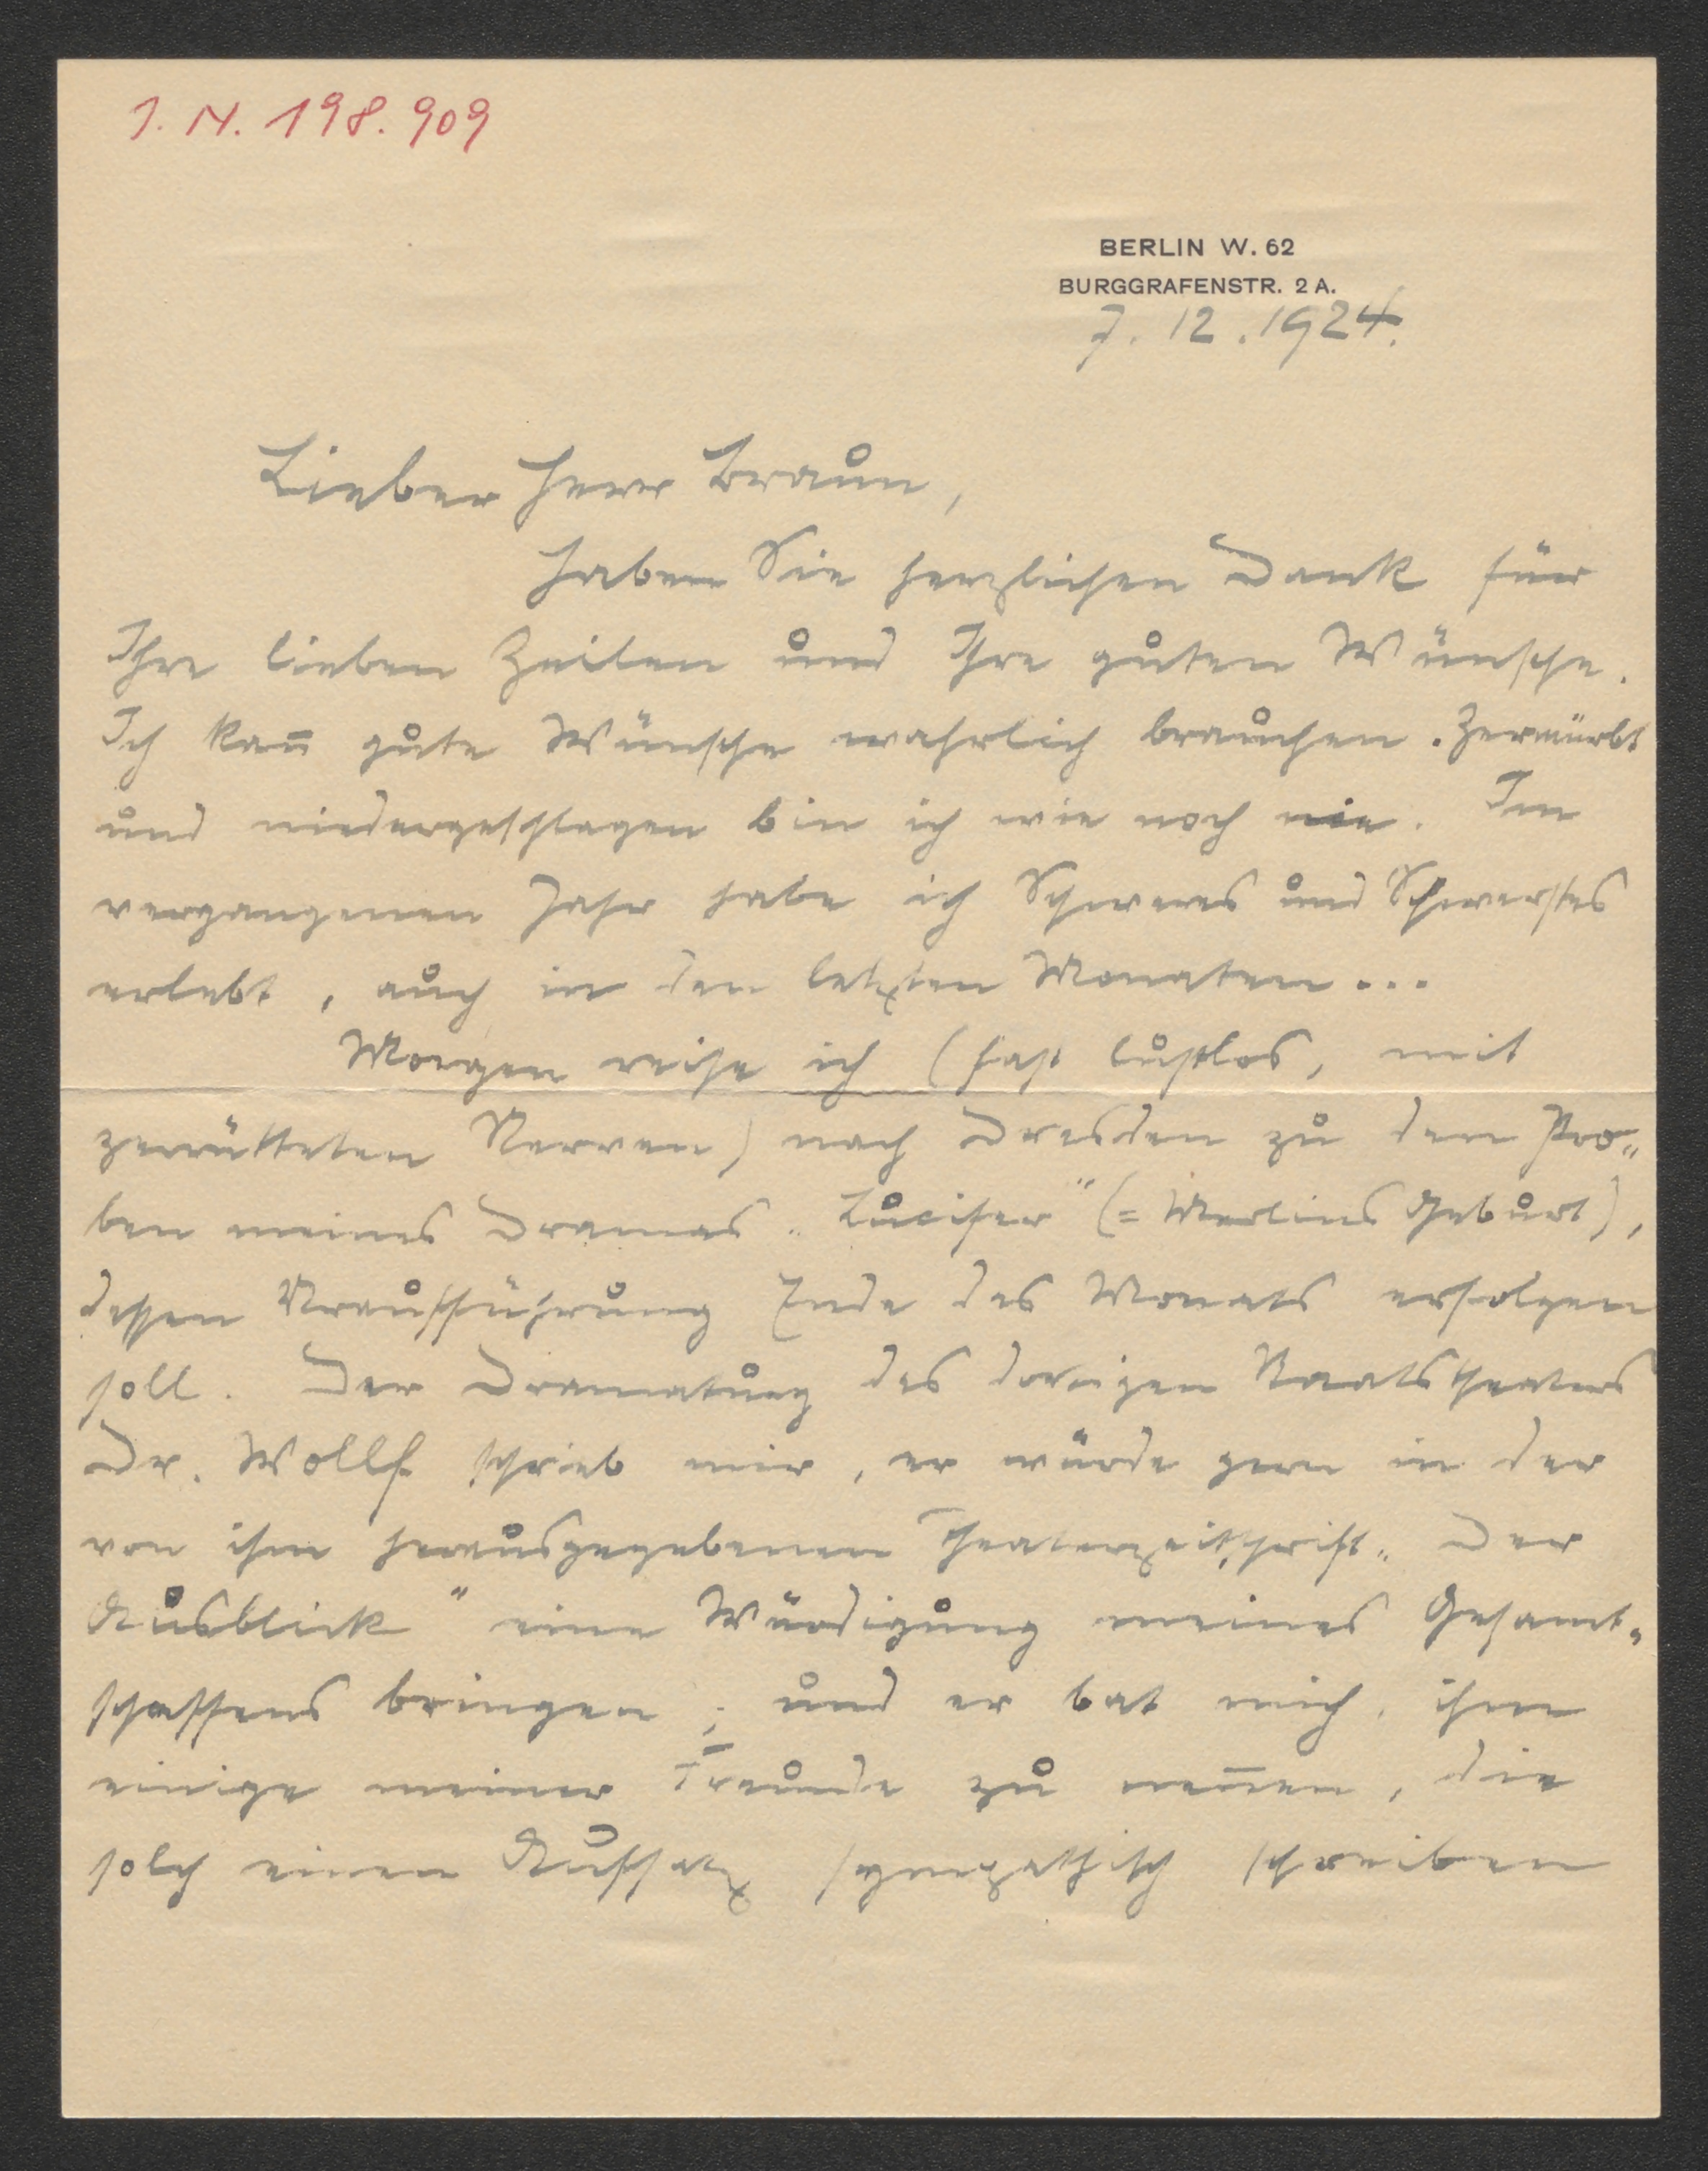 I. N. 198.909
BERLIN W. 62
BURGGRAFENSTR. 2 A.
7. 12. 1924.
Lieber Herr Braun,
Haben Sie herzlichen Dank für
Ihre lieben Zeilen und Ihre guten Wünsche.
Ich kan̄ gute Wünsche wahrlich brauchen. Zermürbt
und niedergeschlagen bin ich wie noch nie. Im
vergangenen Jahr habe ich Schweres und Schwerstes
erlebt, auch in den letzten Monaten...
Morgen reise ich (fast lustlos, mit
zerrütteten Nerven) nach Dresden zu den Pro-
ben meines Dramas „Lucifer" (= Merlins Geburt),
dessen Uraufführung Ende des Monats erfolgen
soll. Der Dramaturg des dortigen Staatstheaters
Dr. Wollf schrieb mir, er würde gern in der
von ihm herausgegebenen Theaterzeitschrift „Der
Ausblick" eine Würdigung meines Gesamt-
schaffens bringen; und er bat mich, ihm
einige meiner Freunde zu nen̄en, die
solch einen Aufsatz sympathisch schreiben